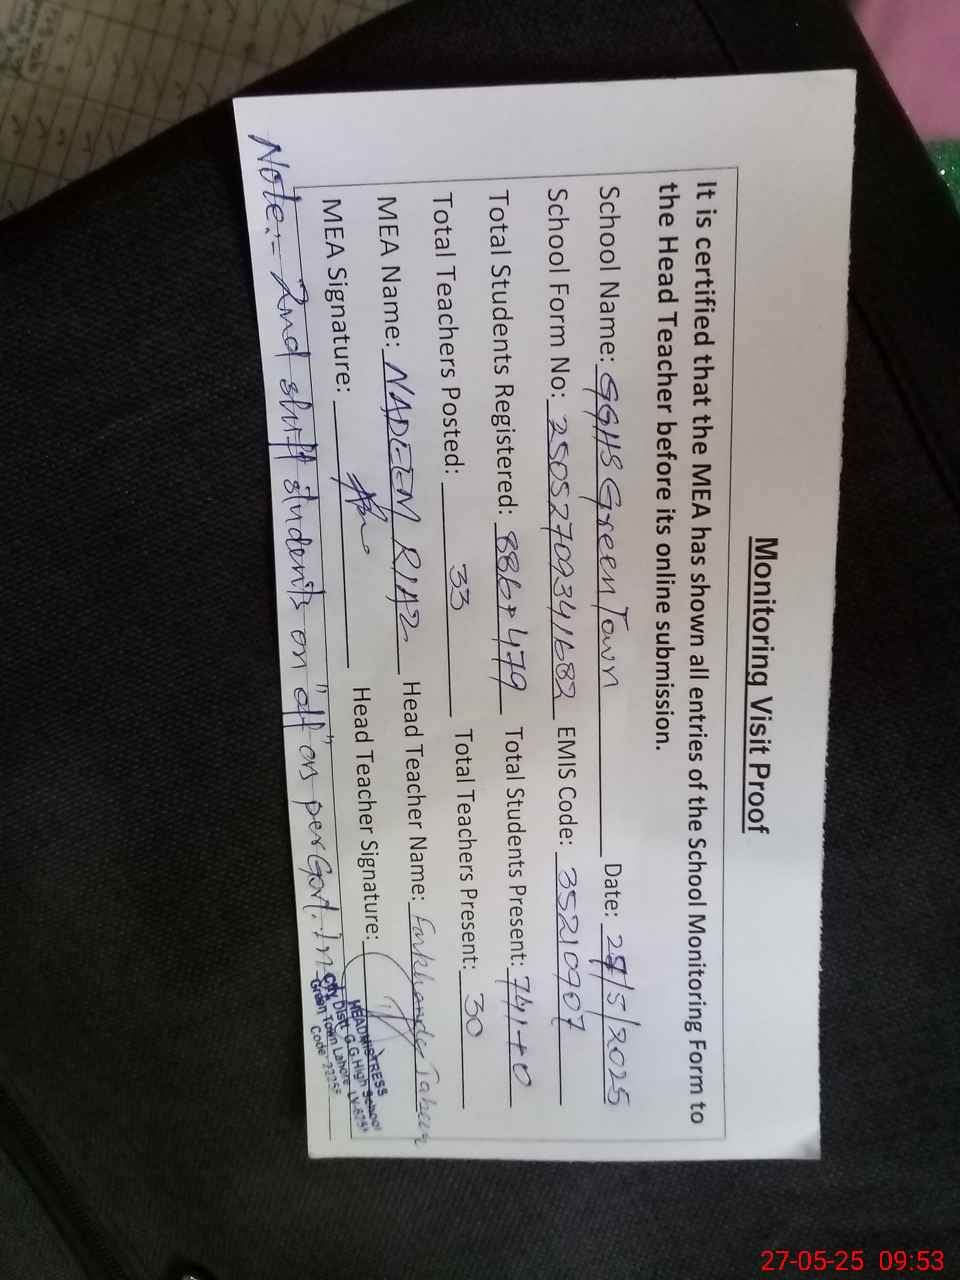 Monitoring Visit Proof
It is certified that the MEA has shown all entries of the School Monitoring Form to
the Head Teacher before its online submission.
School Name: GGHS Green Town Date: 27/5/2025
School Form No: 2505270934 1682 EMIS Code: 35210907
Total Students Registered: 886+479 Total Students Present: 741+0
Total Teachers Posted: 33 Total Teachers Present: 30
MEA Name: NADEEM RIAZ Head Teacher Name: Farkhanda Taheer
MEA Signature: Head Teacher Signature:
Note:- 2nd shift students on "off" as per Govt. Ins
HEADMISTRESS
City Distt. G.G.High School
Green Town Lahore
Code
27-05-25 09:53